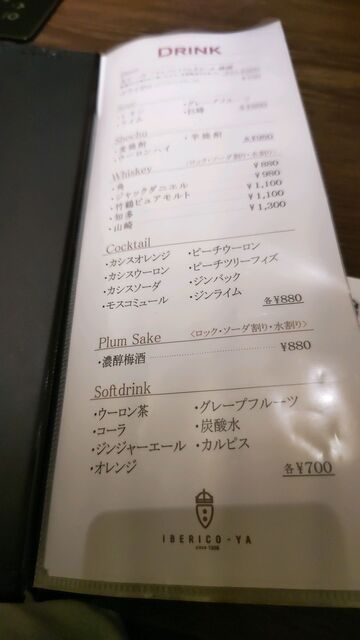 DRINK
・グレープフルーツ
Shochu
・麦焼酎 ・芋焼酎 各¥980
・ウーロンハイ
Whiskey 〈ロック・ソーダ割り・水割り〉
・角 ¥880
・ジャックダニエル ¥980
・竹鶴ピュアモルト ¥1,100
・知多 ¥1,100
・山崎 ¥1,300
Cocktail
・カシスオレンジ ・ピーチウーロン
・カシスウーロン ・ピーチツリーフィズ
・カシスソーダ ・ジンバック
・モスコミュール ・ジンライム
各¥880
Plum Sake 〈ロック・ソーダ割り・水割り〉
・濃醇梅酒 ¥880
Softdrink
・ウーロン茶 ・グレープフルーツ
・コーラ ・炭酸水
・ジンジャーエール ・カルピス
・オレンジ
各¥700
IBERICO-YA